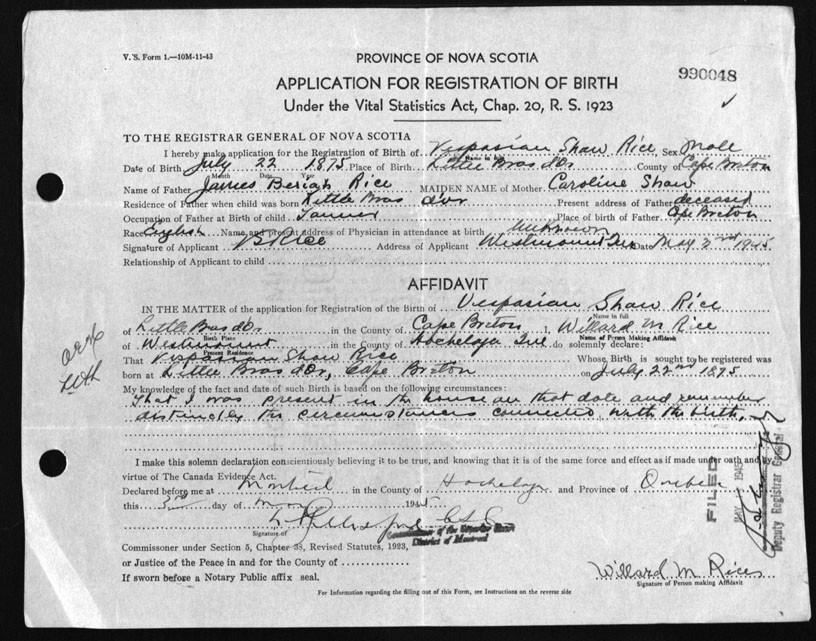 V. S. Form 1.—10M-11-43
PROVINCE OF NOVA SCOTIA
990048
APPLICATION FOR REGISTRATION OF BIRTH
Under the Vital Statistics Act, Chap. 20, R. S. 1923
TO THE REGISTRAR GENERAL OF NOVA SCOTIA
I hereby make application for the Registration of Birth of Vespasian Shaw Rice, Sex Male
Name in full
Date of Birth July 22 1875 Place of Birth Little Bras d'Or County of Cape Breton
Month Date Year
Name of Father James Beriah Rice MAIDEN NAME of Mother Caroline Shaw
Residence of Father when child was born Little Bras dor Present address of Father deceased
Occupation of Father at Birth of child Tanner Place of birth of Father Cape Breton
Race English Name and present address of Physician in attendance at birth Unknown
Signature of Applicant Rice Address of Applicant Westmount Que Date May 3rd 1945
Relationship of Applicant to child
AFFIDAVIT
IN THE MATTER of the application for Registration of the Birth of Vespasian Shaw Rice
Name in full
of Little Bras d'Or in the County of Cape Breton I, Willard M Rice
Birth Place
Name of Person Making Affidavit
of Westmount in the County of Hochelaga Que do solemnly declare:
Present Residence
That Vespasian Shaw Rice Whose Birth is sought to be registered was
born at Little Bras d'Or, Cape Breton on July 22nd 1875
My knowledge of the fact and date of such Birth is based on the following circumstances:
That I was present in the house on that date and remember
distinctly the circumstances connected with the birth.
I make this solemn declaration conscientiously believing it to be true, and knowing that it is of the same force and effect as if made under oath and by
virtue of The Canada Evidence Act.
Declared before me at Montreal in the County of Hochelaga and Province of Quebec
this 3rd day of May 1945
Signature of
Commissioner of the Superior Court
District of Montreal
Commissoner under Section 5, Chapter 38, Revised Statutes, 1923,
or Justice of the Peace in and for the County of
If sworn before a Notary Public affix seal.
Willard M Rice
Signature of Person making Affidavit
For Information regarding the filling out of this Form, see Instructions on the reverse side
FILED
MAY 1945
Deputy Registrar General